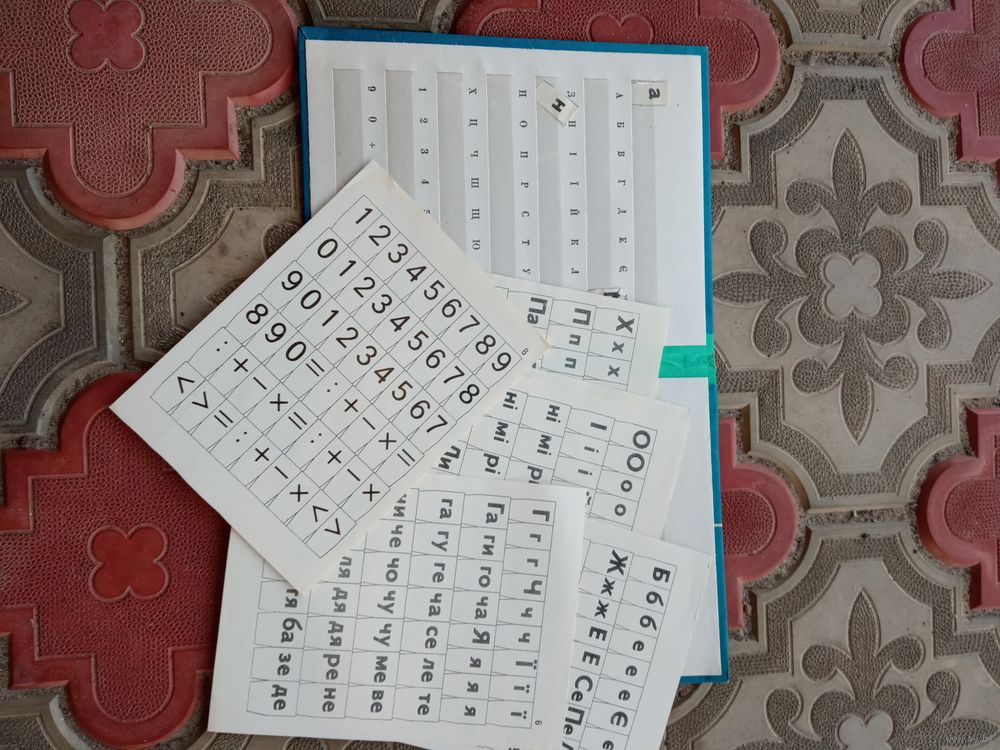 а
н
А Б В Г Д Е Є
З И І Ї Й К Л
Н О П Р С Т У
Х Ц Ч Ш Щ Ю
1 2 3 4 5
9 0 +
8
1 2 3 4 5 6 7 8 9
0 1 2 3 4 5 6 7 8
9 0 1 2 3 4 5 6 7
8 9 0 = : + − × =
: + − × = : + − ×
< > = : + − × < >
Х х х
П п п
Па
О О о о
І і і
ні мі рі
ні мі рі
Б б б е е Є
Ж ж ж Е Е Се Пе
6
Г г г ч ч ч ї ї ї
Га ги го ча Я я я
га гу ге ча се ле те
чи че чо чу чу ме ве
ля дя дя ре не
тя ба зе де